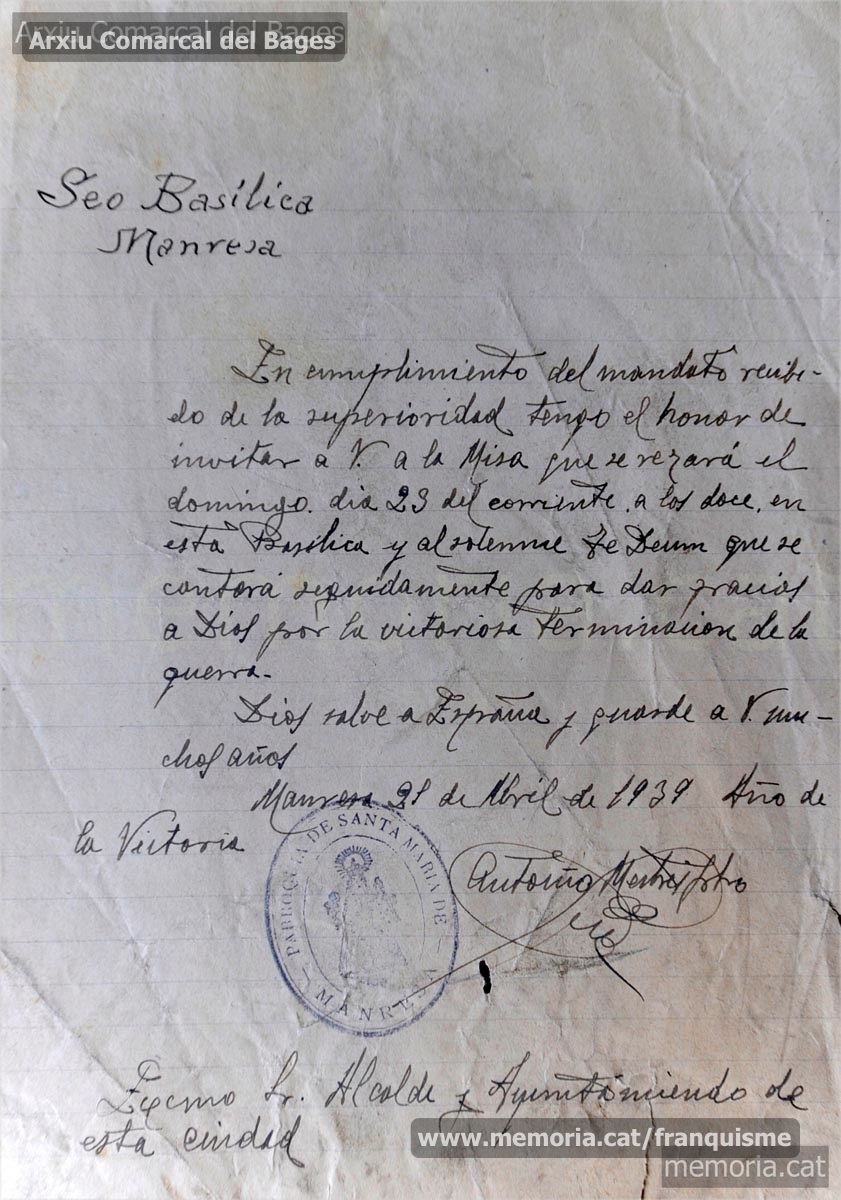 Arxiu Comarcal del Bages
Arxiu Comarcal del Bages
Seo Basílica
Manresa
En cumplimiento del mandato recibi-
do de la superioridad tengo el honor de
invitar a V. a la Misa que se rezará el
domingo. dia 23 del corriente, a los doce, en
esta Basílica y al solemne Te Deum que se
cantará seguidamente para dar gracias
a Dios por la victoriosa terminacion de la
guerra.
Dios salve a España y guarde a V. mu-
chos años
Manresa 21 de Abril de 1939 Año de
la Victoria
PARROQUIA DE SANTA MARIA DE
MANRE
Antonio
Excmo Sr. Alcalde y Ayuntamiendo de
esta ciudad
www.memoria.cat/franquisme
memoria.cat